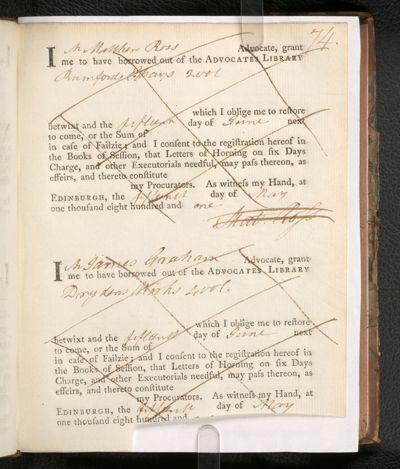 74.
I Mr Matthew Ross Advocate, grant
me to have borrowed out of the ADVOCATES LIBRARY
Rumfords Essays 2 vol
which I oblige me to reſtore
betwixt and the fifteenth day of June next
to come, or the Sum of
in caſe of Failzie; and I conſent to the regiſtration hereof in
the Books of Seſſion, that Letters of Horning on ſix Days
Charge, and other Executorials needful, may paſs thereon, as
effeirs, and thereto conſtitute
my Procurators. As witneſs my Hand, at
EDINBURGH, the fifteenth day of May
one thouſand eight hundred and one
Matt. Roſs
I Mr James Graham Advocate, grant
me to have borrowed out of the ADVOCATES LIBRARY
Drydens Works 2 vol.
which I oblige me to reſtore
betwixt and the fifteenth day of June next
to come, or the Sum of
in caſe of Failzie; and I conſent to the regiſtration hereof in
the Books of Seſſion, that Letters of Horning on ſix Days
Charge, and other Executorials needful, may paſs thereon, as
effeirs, and thereto conſtitute
my Procurators. As witneſs my Hand, at
EDINBURGH, the fifteenth day of May
one thouſand eight hundred and